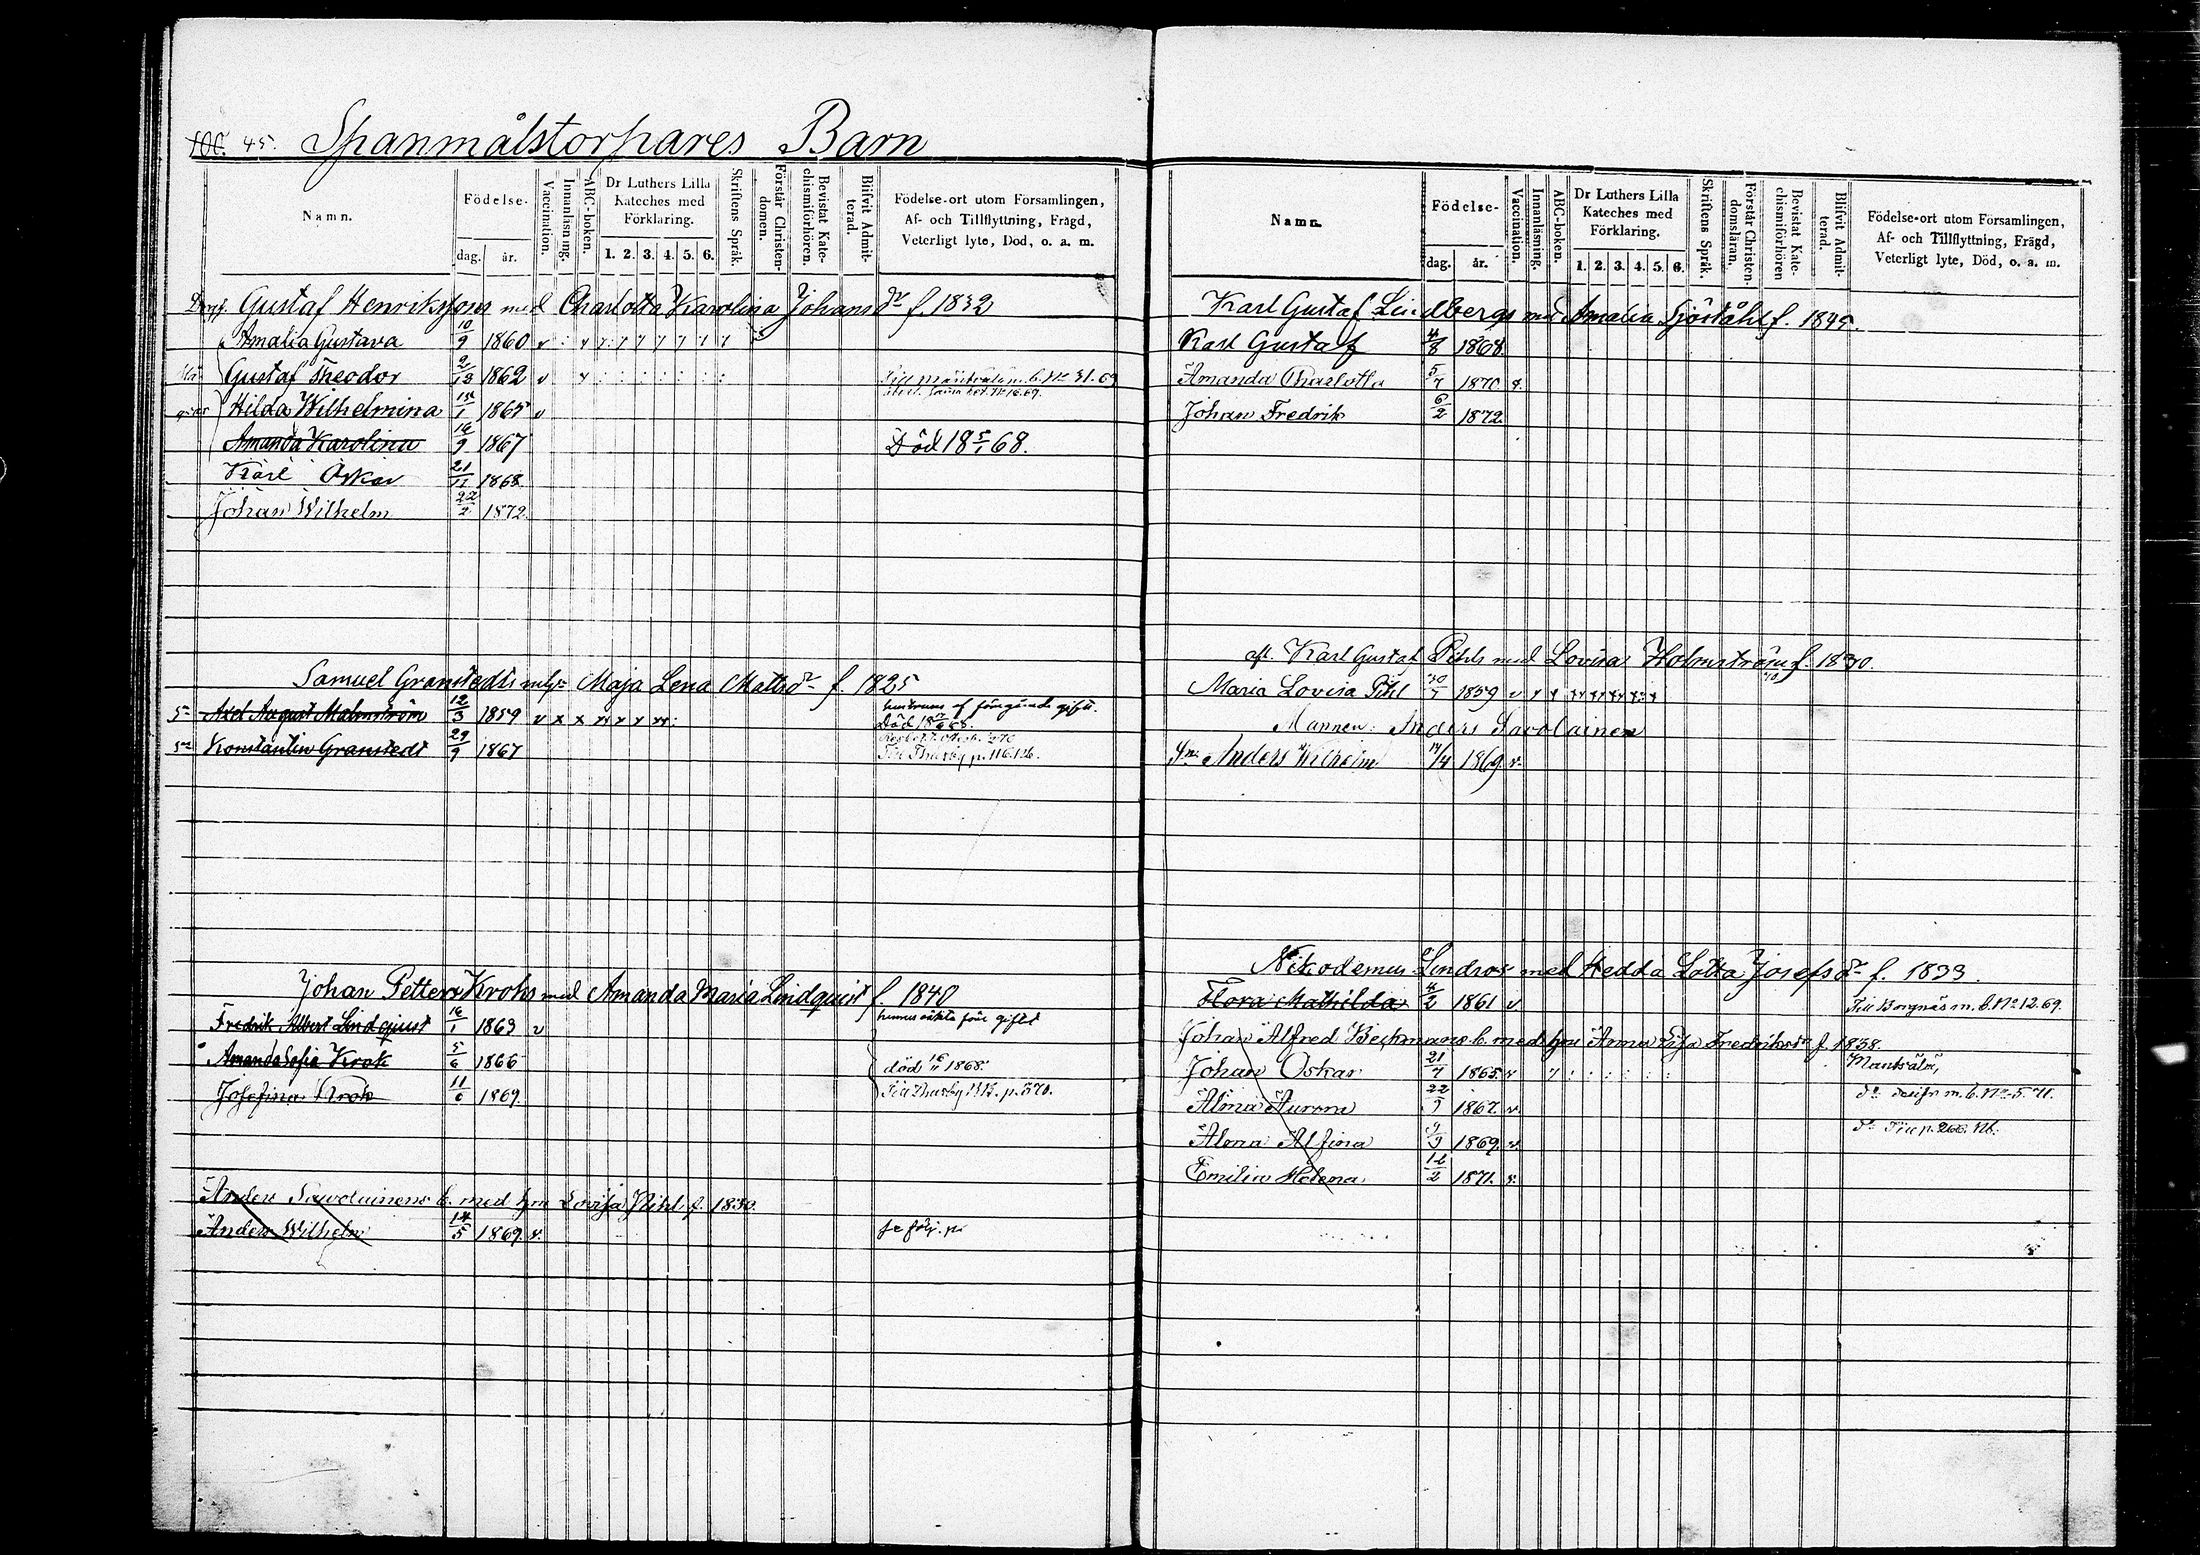 100. 45. Spanmålstorpares Barn
Namn.
Födelse-
dag. år.
Vaccination.
Innanläsning.
ABC-boken.
Dr Luthers Lilla
Kateches med
Förklaring.
1. 2. 3. 4. 5. 6.
Skriftens Språk.
Förstår Christen-
domen.
Bevistat Kate-
chismiförhören.
Blifvit Admit-
terad.
Födelse-ort utom Församlingen,
Af- och Tillflyttning, Frägd,
Veterligt lyte, Död, o. a. m.
Gustaf Henrikssons med Charlotta Karolina Johansdr f. 1832
Amalia Gustava 10/9 1860 v
Gustaf Theodor 1862 v
Hilda Wilhelmina 1865 v
Amanda Karolina 16/9 1867 Död 18 5/1 68.
Karl Oskar 21/11 1868
Johan Wilhelm 22/2 1872
Samuel Granstedts Maja Lena Mattsdr f. 1825
hustruns af föregående gifte.
Axel August Malmström 12/3 1859 v x x Död
Konstantin Granstedt 29/9 1867 Till Thusby p. 116
Johan Petter Kroks med Amanda Maria Lindqvist f. 1840
Fredrik Albert Lindqvist 16/1 1863 v hennes oäkta före giftet
Amanda Sofia Krok 5/6 1866 död 1868.
Josefina Krok 11/6 1869. Till Thusby p. 370.
Anders Savolainens b. med hu Lovisa Pihl f. 1830.
Anders Wilhelm 14/5 1869 v. se följ. p.
Namn.
Födelse-
dag. år.
Vaccination.
Innanläsning.
ABC-boken.
Dr Luthers Lilla
Kateches med
Förklaring.
1. 2. 3. 4. 5. 6.
Skriftens Språk.
Förstår Christen-
domsläran.
Bevistat Kate-
chismiförhören
Blifvit Admit-
terad.
Födelse-ort utom Församlingen,
Af- och Tillflyttning, Frägd,
Veterligt lyte, Död, o. a. m.
Karl Gustaf Lindbergs med Amalia Sjöståhl f. 1845.
Karl Gustaf 4/8 1868.
Amanda Charlotta 5/7 1870 v.
Johan Fredrik 6/2 1872.
afl. Karl Gustaf Pihls med Lovisa Holmström f. 1830.
Maria Lovisa Pihl 1859 v
Mannen: Anders Savolainen
Anders Wilhelm 14/4 1869. v.
Nikodemus Lindros med Hedda Lotta Josefsdr f. 1833
Flora Mathilda 4/2 1861 v Till Borgnäs m. b. No 12. 69.
Johan Alfred Beckmans b. med hu Anna Lisa Fredriksdr f. 1838.
Johan Oskar 21/7 1865 v Mäntsälä,
Alma Aurora 22/9 1867. v. m. b. No 5. 71.
Alma Alfina 9/9 1869. v. Till p. 266. Nb.
Emilia Helena 1871. v.